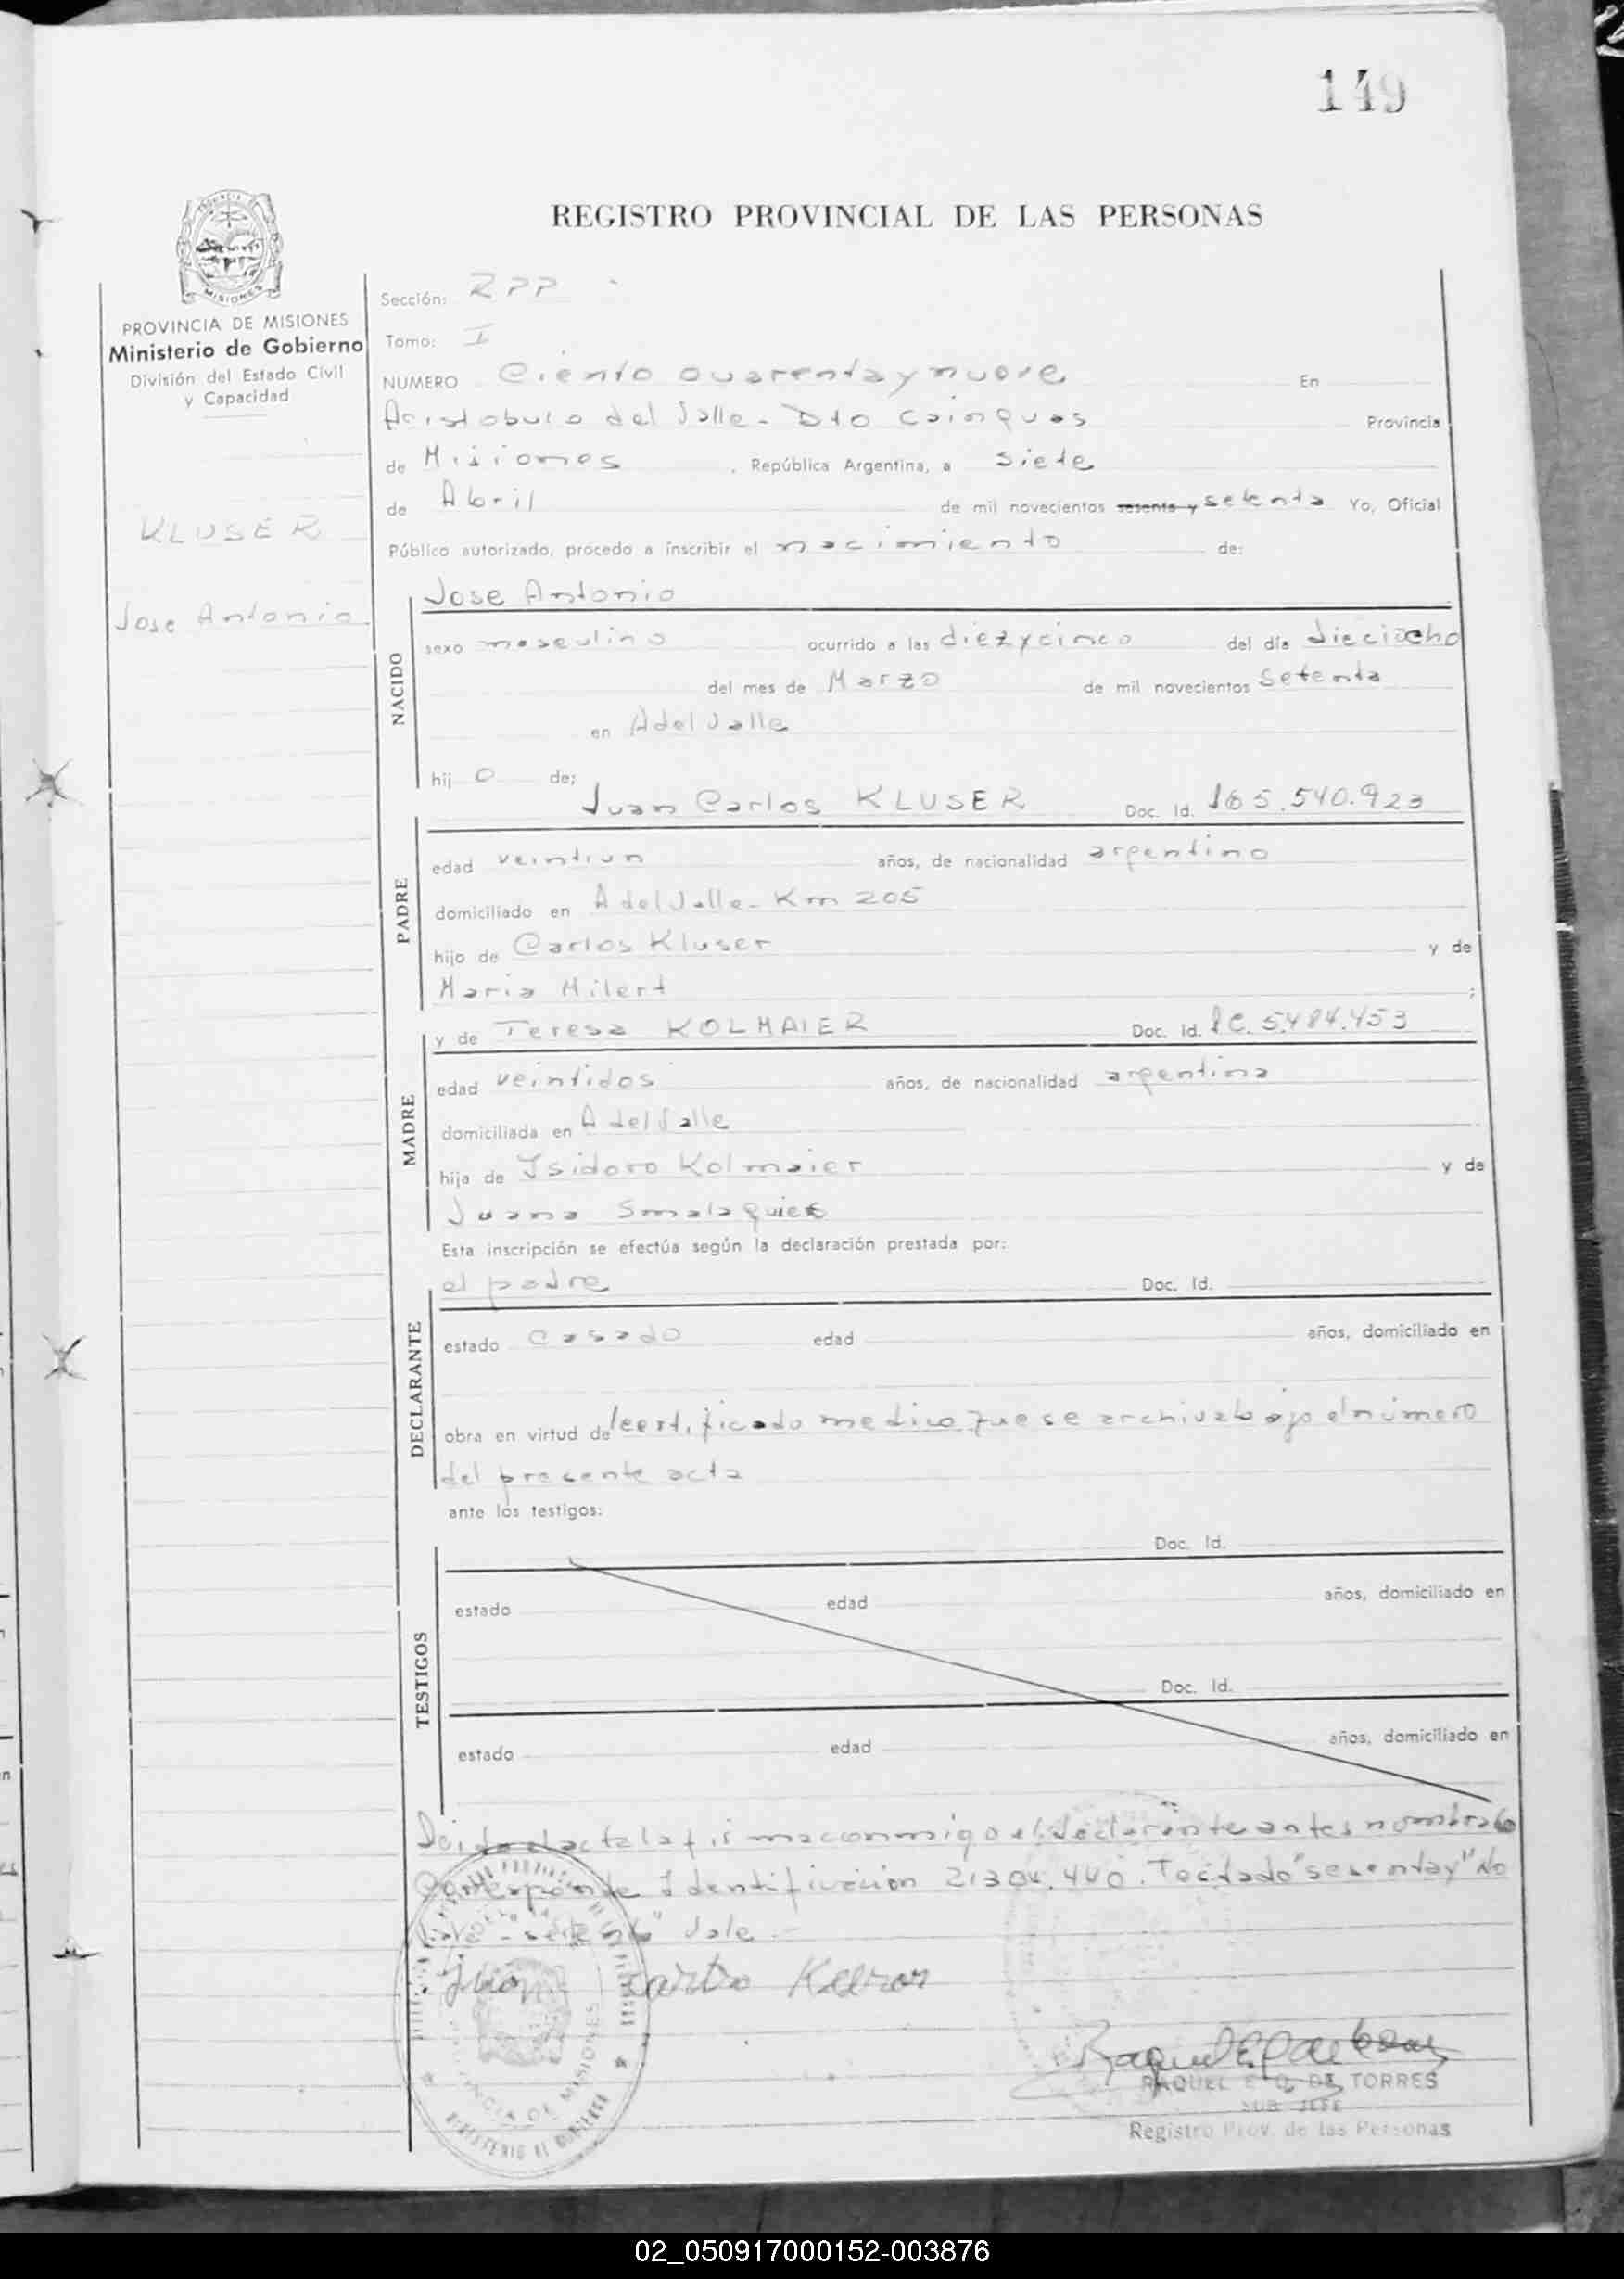 149
REGISTRO PROVINCIAL DE LAS PERSONAS
MISIONES
PROVINCIA DE MISIONES
Ministerio de Gobierno
División del Estado Civil
y Capacidad
KLUSER
Jose Antonio
Sección: RPP
Tomo: I
NUMERO Ciento cuarentaynueve En
Aristobulo del Valle - Dto Cainguas Provincia
de Misiones, República Argentina, a siete
de Abril de mil novecientos sesenta y setenta Yo, Oficial
Público autorizado, procedo a inscribir el nacimiento de:
NACIDO
Jose Antonio
sexo masculino ocurrido a las diezycinco del día dieciocho
del mes de Marzo de mil novecientos setenta
en A del Valle
hij o de:
Juan Carlos KLUSER Doc. Id. 5.540.923
PADRE
edad veintiun años, de nacionalidad argentino
domiciliado en A del Valle - Km 205
hijo de Carlos Kluser y de
Maria Milert ;
MADRE
y de Teresa KOLMAIER Doc. Id. lC. 5.484.453
edad veintidos años, de nacionalidad argentina
domiciliada en A del Valle
hija de Isidoro Kolmaier y de
Juana
Esta inscripción se efectúa según la declaración prestada por:
DECLARANTE
el padre Doc. Id.
estado casado edad años, domiciliado en
obra en virtud del certificado medico que se archiva bajo el número
del presente acta
ante los testigos:
TESTIGOS
Doc. Id.
estado edad años, domiciliado en
Doc. Id.
estado edad años, domiciliado en
Leida el acta la firma conmigo el declarante antes nombrado
Corresponde Identificacion 21304.440. Testado "sesenta y" No
vale - "setenta" Vale -
Juan
RAQUEL E. G. DE TORRES
SUB JEFE
Registro Prov. de las Personas
MINISTERIO DE GOBIERNO
02_050917000152-003876